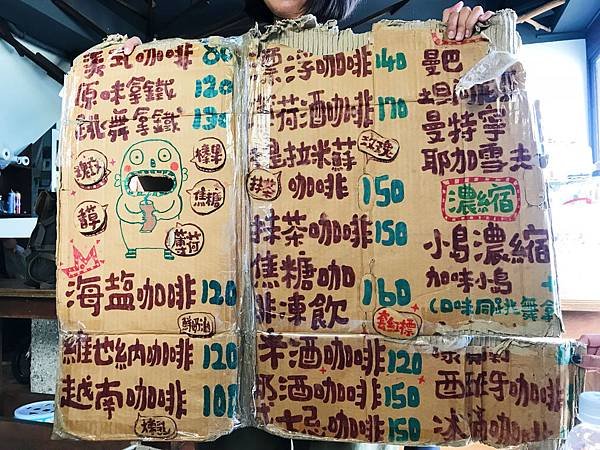 美式咖啡 80
原味拿鐵 120
跳舞拿鐵 130
榛果
焦糖
薰荷
海鹽咖啡 120
鮮奶油
維也納咖啡 120
越南咖啡 100
煉乳
漂浮咖啡 140
薄荷酒咖啡 170
提拉米蘇
咖啡 150
玫瑰
抹茶
抹茶咖啡 150
焦糖咖
啡凍飲 160
紅標
果酒咖啡 120
奶酒咖啡 150
咖啡 150
曼巴
曼特寧
耶加雪夫
濃縮
小鳥濃縮
加味小鳥
(口味同跳舞拿
西班牙咖啡
冰滴咖啡